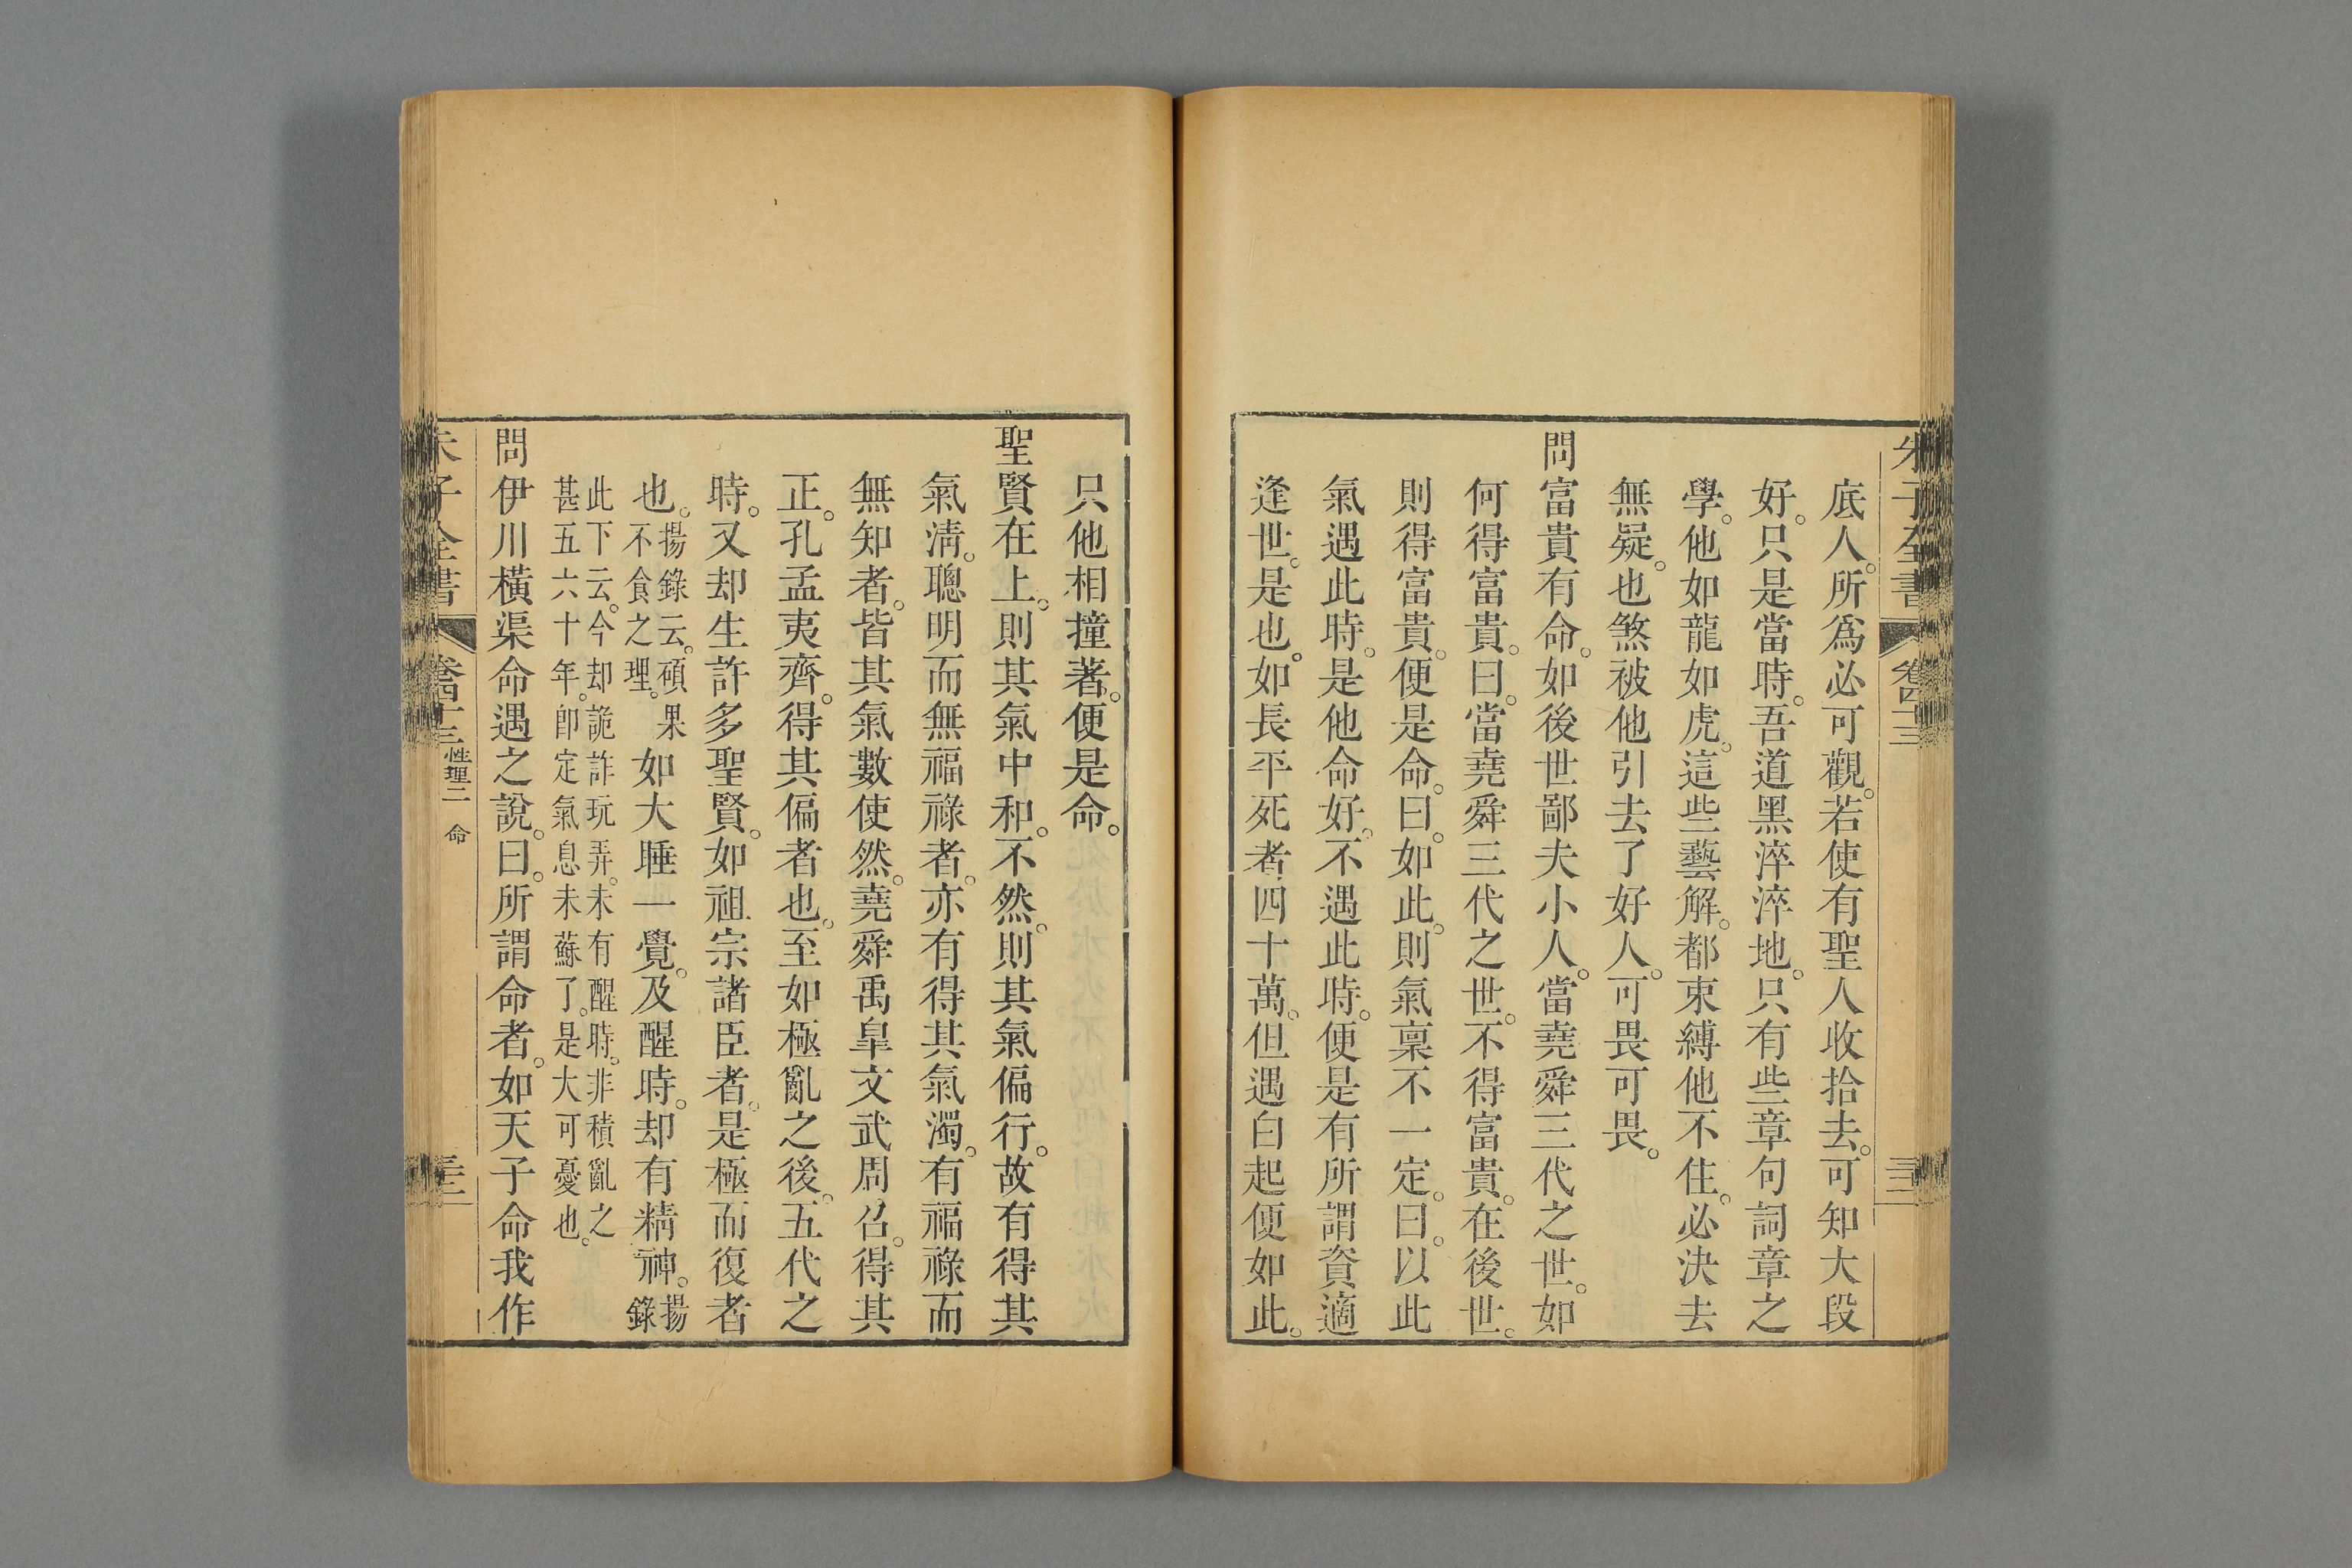 朱子全書
卷四十三
三十二
底人。所爲必可觀。若使有聖人收拾去。可知大段
好。只是當時。吾道黑淬淬地。只有些章句詞章之
學。他如龍如虎。這些藝解。都束縛他不住。必決去
無疑。也煞被他引去了好人。可畏可畏。
問富貴有命。如後世鄙夫小人。當堯舜三代之世。如
何得富貴。曰。當堯舜三代之世。不得富貴。在後世。
則得富貴。便是命。曰。如此。則氣稟不一定。曰。以此
氣遇此時。是他命好。不遇此時。便是有所謂資適
逢世。是也。如長平死者四十萬。但遇白起便如此。
只他相撞著。便是命。
聖賢在上。則其氣中和。不然。則其氣偏行。故有得其
氣淸。聰明而無福祿者。亦有得其氣濁。有福祿而
無知者。皆其氣數使然。堯舜禹皐文武周召。得其
正。孔孟夷齊。得其偏者也。至如極亂之後。五代之
時。又却生許多聖賢。如祖宗諸臣者。是極而復者
也。揚錄云。碩果不食之理。如大睡一覺。及醒時。却有精神。揚錄
此下云。今却詭詐玩弄。未有醒時。非積亂之
甚五六十年。卽定氣息未蘇了。是大可憂也。
問伊川橫渠命遇之說。曰。所謂命者。如天子命我作
朱子全書
卷四十三
性理二 命
三十二